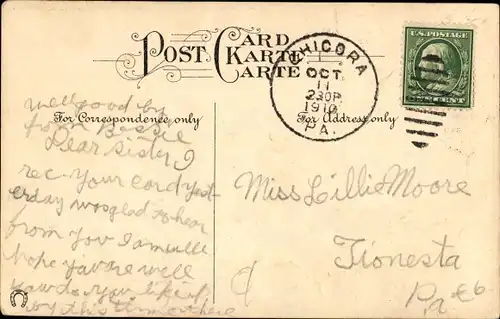 POST CARD
KARTE
CARTE
CHICORA
OCT
11
230P
1910
PA.
U.S. POSTAGE
ONE CENT
For Correspondence only
For Address only
well good by
from Bessie
Dear Sister, I
rec. your card yest-
erday was glad to hear
from you I am well
hope you are well
how do you like it
by this time
Miss Lillie Moore
Tionesta
Pa